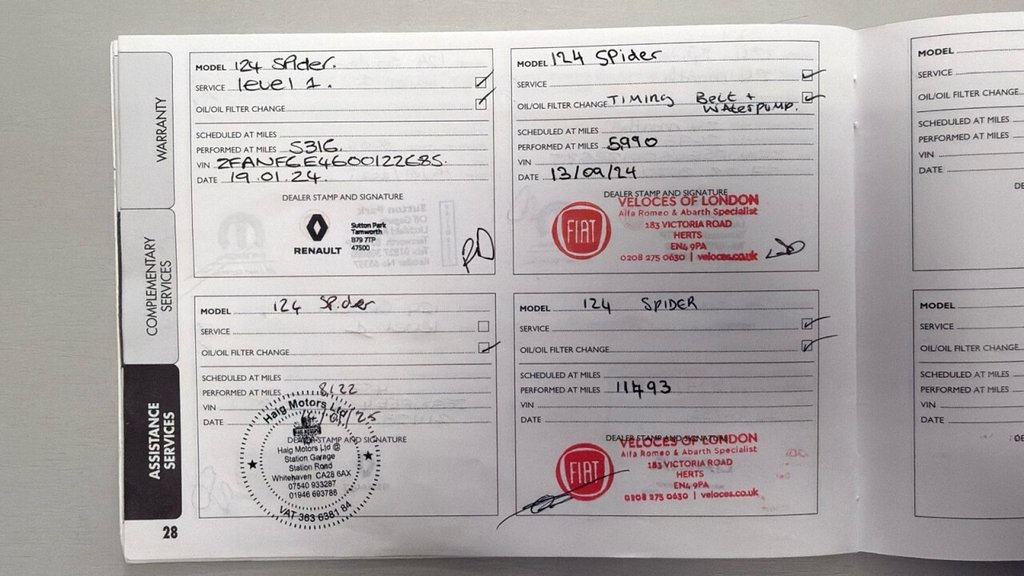 WARRANTY
COMPLEMENTARY
SERVICES
ASSISTANCE
SERVICES
28
MODEL 124 Spider.
SERVICE level 1.
OIL/OIL FILTER CHANGE
SCHEDULED AT MILES
PERFORMED AT MILES 5316.
VIN ZFANF6E4600122685.
DATE 19.01.24.
DEALER STAMP AND SIGNATURE
RENAULT
Sutton Park
Tamworth
B79 7TP
47500
MODEL 124 Spider
SERVICE
OIL/OIL FILTER CHANGE TIMING Belt +
WATERPUMP.
SCHEDULED AT MILES
PERFORMED AT MILES 5990
VIN
DATE 13/09/24
DEALER STAMP AND SIGNATURE
FIAT
VELOCES OF LONDON
Alfa Romeo & Abarth Specialist
183 VICTORIA ROAD
HERTS
EN4 9PA
0208 275 0630 | veloces.co.uk
MODEL 124 Spider
SERVICE
OIL/OIL FILTER CHANGE
SCHEDULED AT MILES
PERFORMED AT MILES 8122
VIN
DATE
DEALER STAMP AND SIGNATURE
Haig Motors Ltd
Haig Motors Ltd @
Station Garage
Station Road
Whitehaven CA28 6AX
07540 933287
01946 693788
VAT 363 6381 84
MODEL 124 SPIDER
SERVICE
OIL/OIL FILTER CHANGE
SCHEDULED AT MILES
PERFORMED AT MILES 11493
VIN
DATE
DEALER STAMP AND SIGNATURE
FIAT
VELOCES OF LONDON
Alfa Romeo & Abarth Specialist
183 VICTORIA ROAD
HERTS
EN4 9PA
0208 275 0630 | veloces.co.uk
MODEL
SERVICE
OIL/OIL FILTER CHANGE
SCHEDULED AT MILES
PERFORMED AT MILES
VIN
DATE
MODEL
SERVICE
OIL/OIL FILTER CHAN
SCHEDULED AT MILES
PERFORMED AT MILES
VIN
DATE